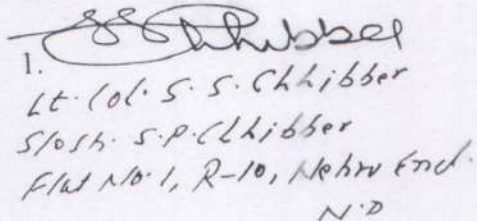 SS Chhibber
1.
Lt. Col. S. S. Chhibber
S/o Sh. S.P. Chhibber
Flat No. 1, R-10, Nehru Encl.
N.D